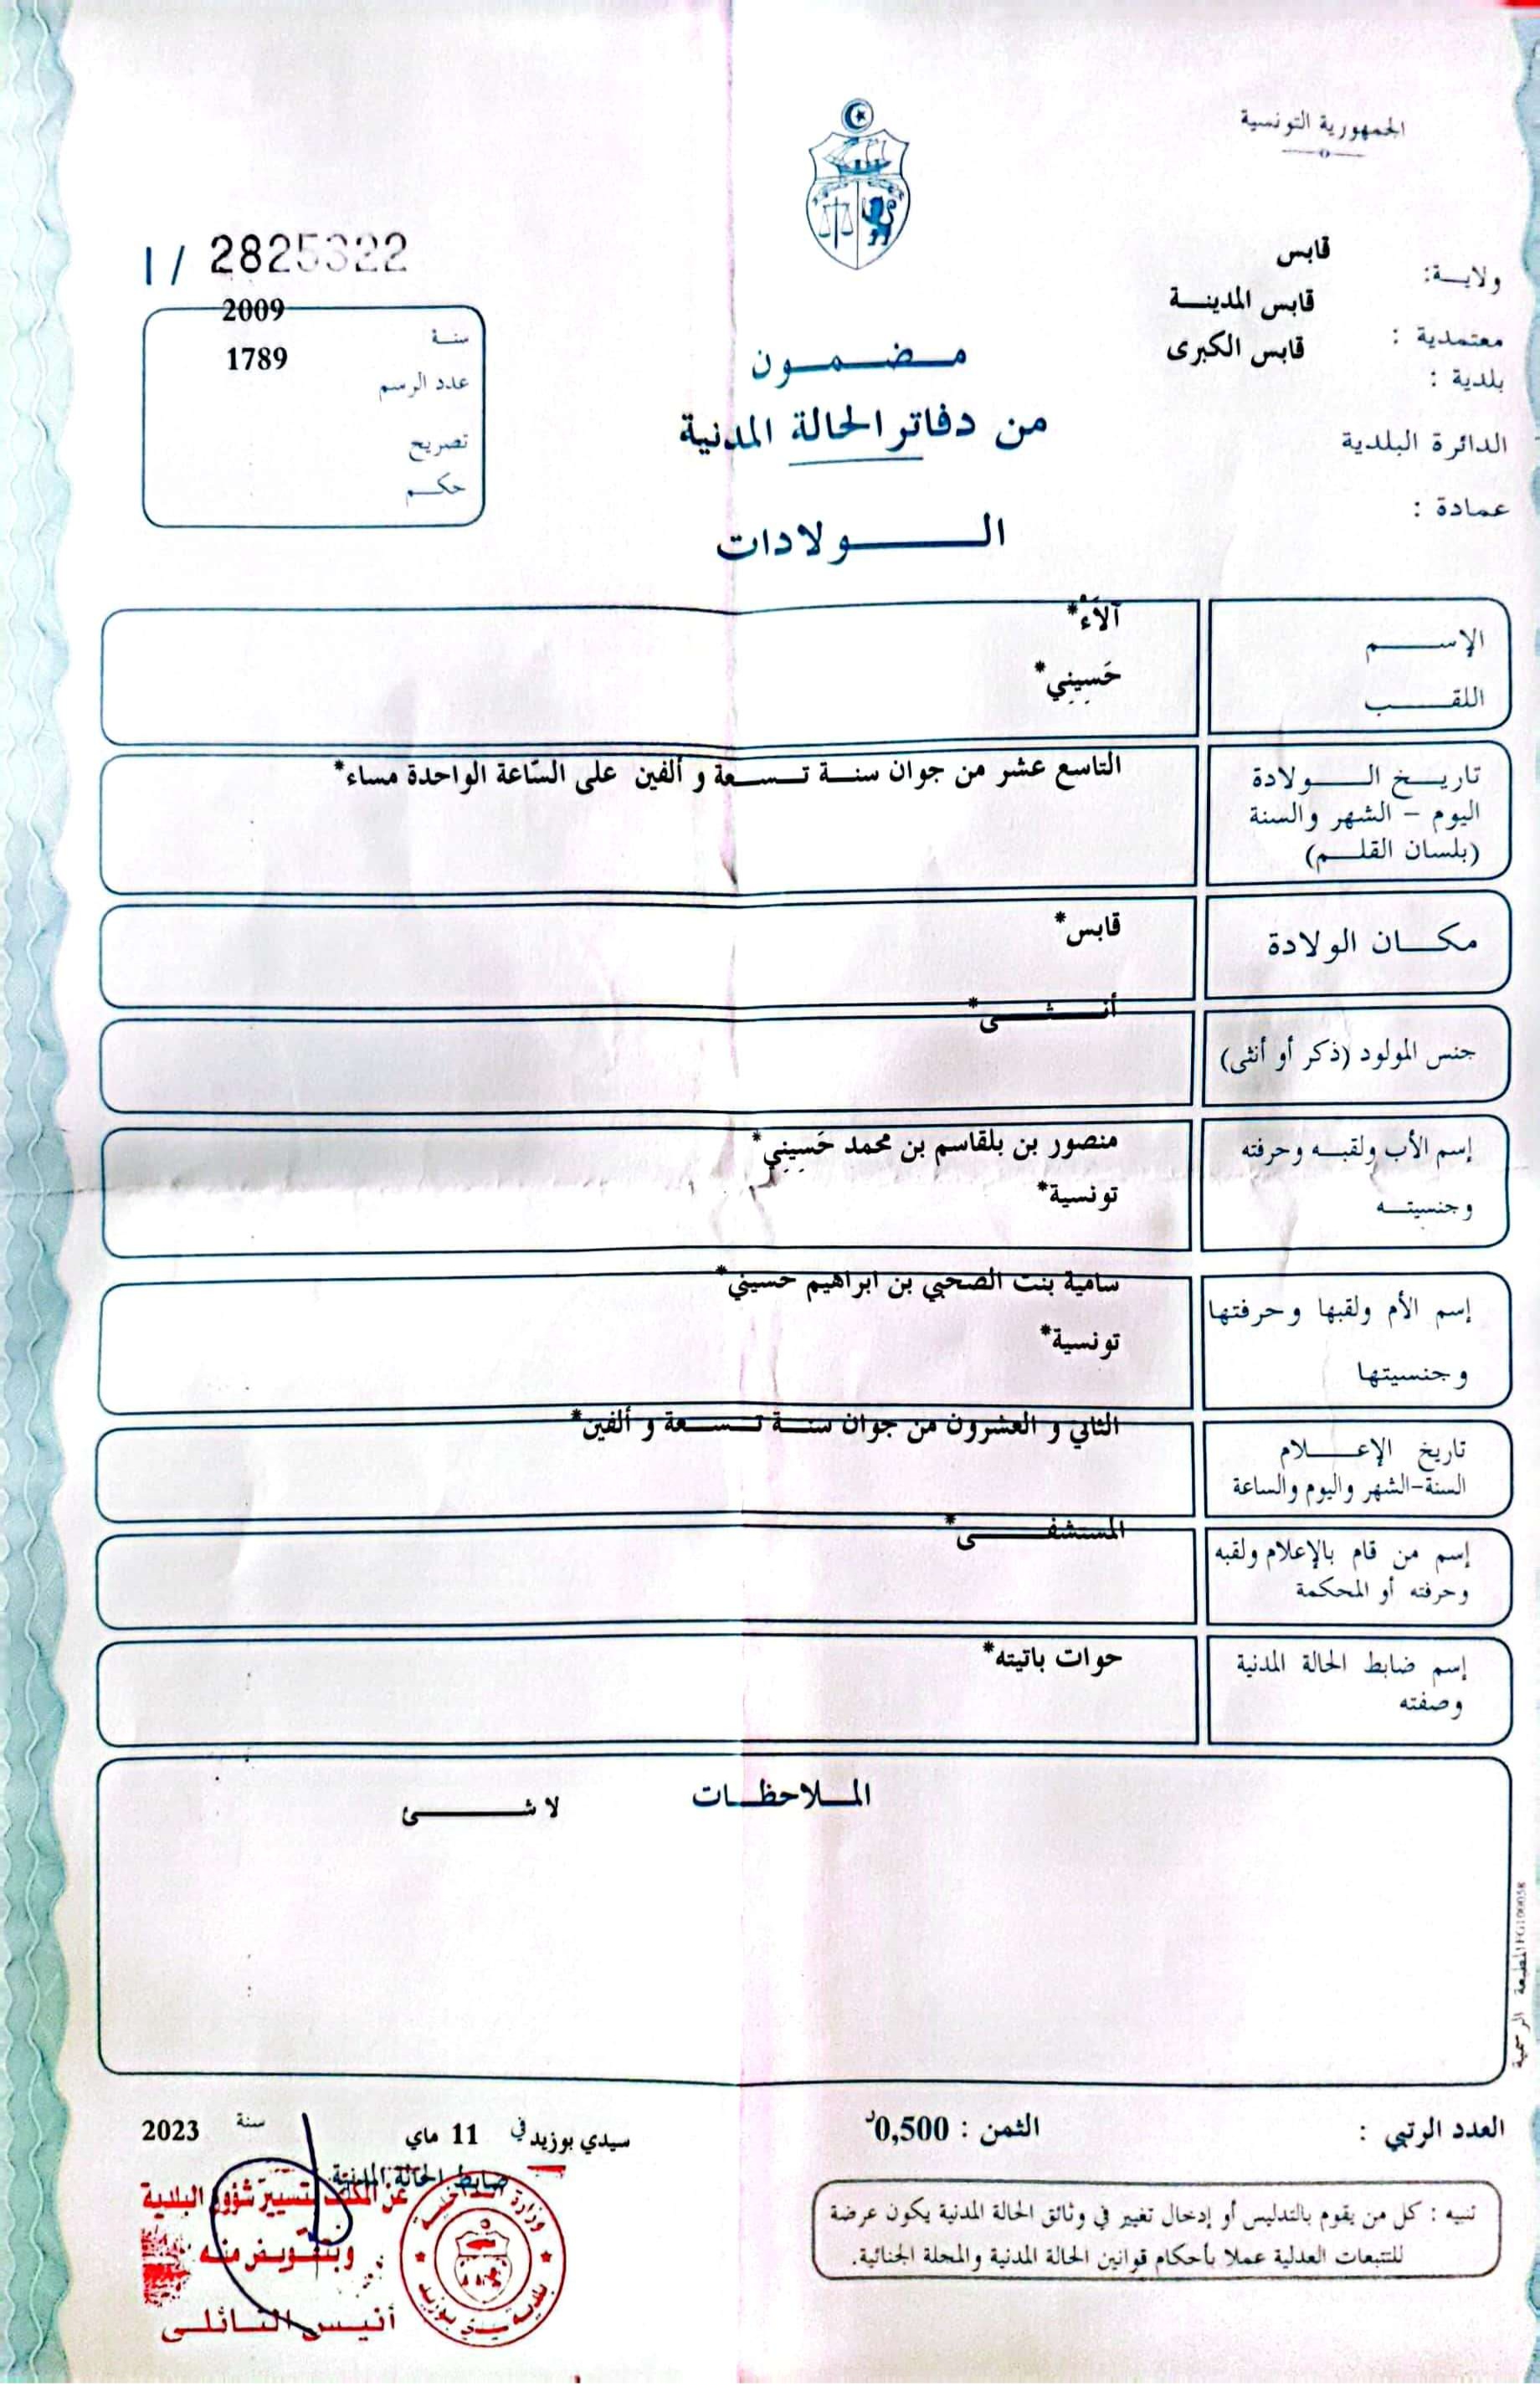 الجمهورية التونسية
ولايـــة: قابس
معتمدية : قابس المدينـــة
بلدية : قابس الكبرى
الدائرة البلدية
عمادة :
مـــضـــمـــون
من دفاتر الحالة المدنية
الـــــــولادات
I / 2825322
سنـة 2009
عدد الرسم 1789
تصريح
حكــم
الإســـــم آلآءْ*
اللقـــــب حَسِينِي*
تاريــخ الـــــولادة التاسع عشر من جوان سنــة تــســعة و ألفين على السّاعة الواحدة مساء*
اليوم – الشهر والسنة
(بلسان القلـــم)
مكـــان الولادة قابس*
جنس المولود (ذكر أو أنثى) أنــــثــــى*
إسم الأب ولقبــه وحرفته منصور بن بلقاسم بن محمد حَسِينِي*
وجنسيتــه تونسية*
إسم الأم ولقبها وحرفتها سامية بنت الصحبي بن ابراهيم حسيني*
وجنسيتها تونسية*
تاريخ الإعـــــلام الثاني و العشرون من جوان سنــة تــســعة و ألفين*
السنة-الشهر واليوم والساعة
إسم من قام بالإعلام ولقبه المستشفـــــى*
وحرفته أو المحكمة
إسم ضابط الحالة المدنية حوات باتيته*
وصفته
المـلاحظـات
لا شـــــئ
المطبعة الرسمية FG100058
العدد الرتبي :
الثمن : 0,500د
سيدي بوزيد في 11 ماي سنة 2023
ضابط الحالة المدنية
عن المكلف بتسيير شؤون البلدية
وبتفـويـض منـه
أنيـس التـائلـي
وزارة الداخلية
بلدية سيدي بوزيد
تنبيه : كل من يقوم بالتدليس أو إدخال تغيير في وثائق الحالة المدنية يكون عرضة
للتتبعات العدلية عملا بأحكام قوانين الحالة المدنية والمجلة الجنائية.